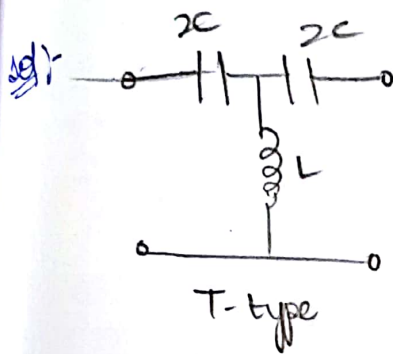 sol:-
2C 2C
L
T-type